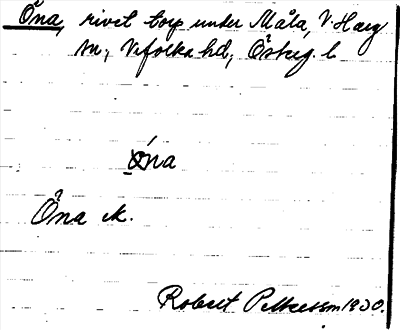 Öna, rivet torp under Måla, V. Harg
sn, Vifolka hd, Österg. l.
óna
Öna ek.
Robert Pettersson 1930.